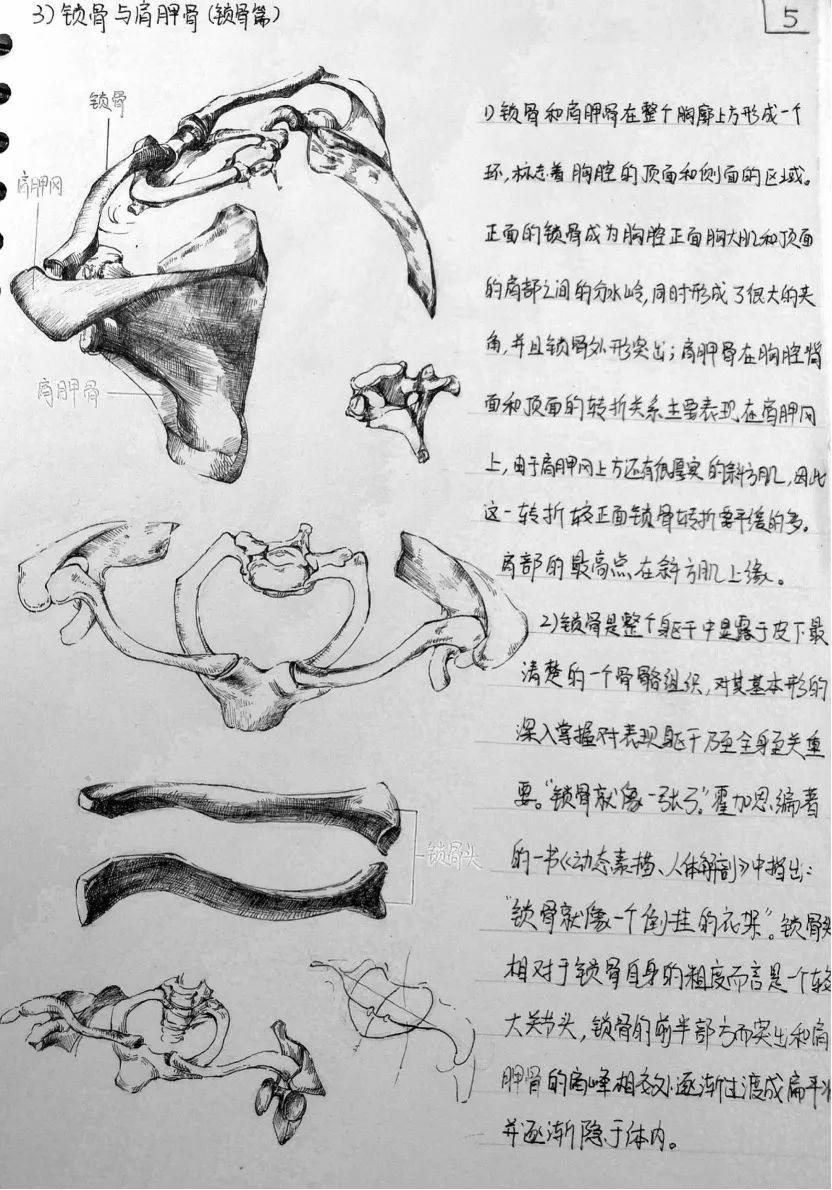 3) 锁骨与肩胛骨(锁骨篇)
5
锁骨
肩胛冈
肩胛骨
锁骨头
1) 锁骨和肩胛骨在整个胸廓上方形成一个
环,标志着胸腔的顶面和侧面的区域。
正面的锁骨成为胸腔正面胸大肌和顶面
的肩部之间的分水岭,同时形成了很大的夹
角,并且锁骨外形突出;肩胛骨在胸腔背
面和顶面的转折关系主要表现在肩胛冈
上,由于肩胛冈上方还有很厚实的斜方肌,因此
这一转折较正面锁骨转折要平缓的多。
肩部的最高点在斜方肌上缘。
2) 锁骨是整个躯干中显露于皮下最
清楚的一个骨骼组织,对其基本形的
深入掌握对表现躯干乃至全身至关重
要。"锁骨就像一张弓"。霍加思编著
的一书《动态素描、人体解剖》中指出:
"锁骨就像一个倒挂的衣架"。锁骨头
相对于锁骨自身的粗度而言是一个较
大关节头,锁骨的前半部方而突出和肩
胛骨的肩峰相交处逐渐过渡成扁平状
并逐渐隐于体内。